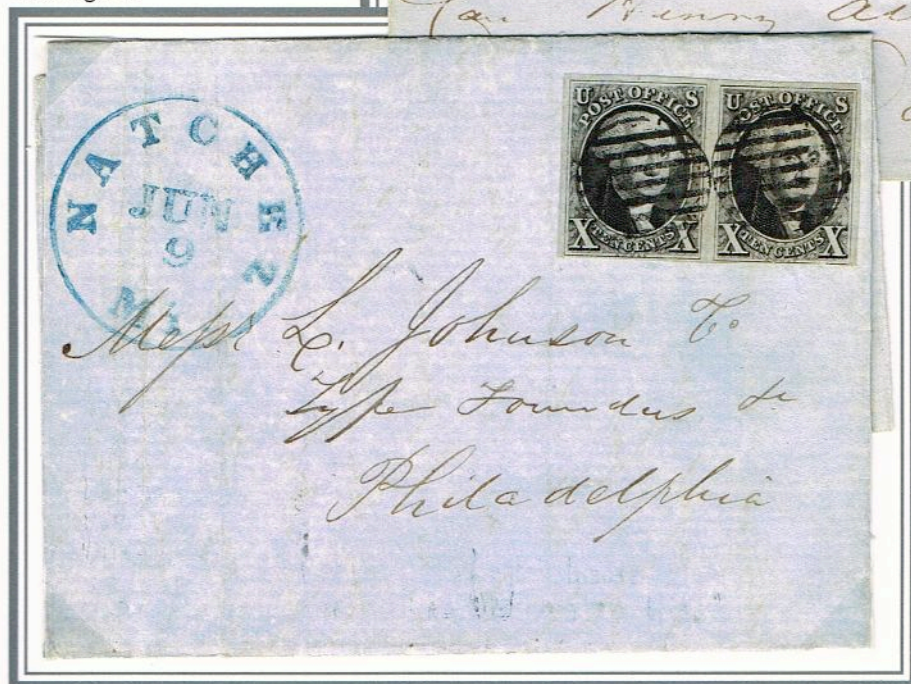 Henry
NATCHEZ
JUN
9
U S
POST OFFICE
X TEN CENTS X
U S
POST OFFICE
X TEN CENTS X
Messr L. Johnson Co
Type Founders &c
Philadelphia